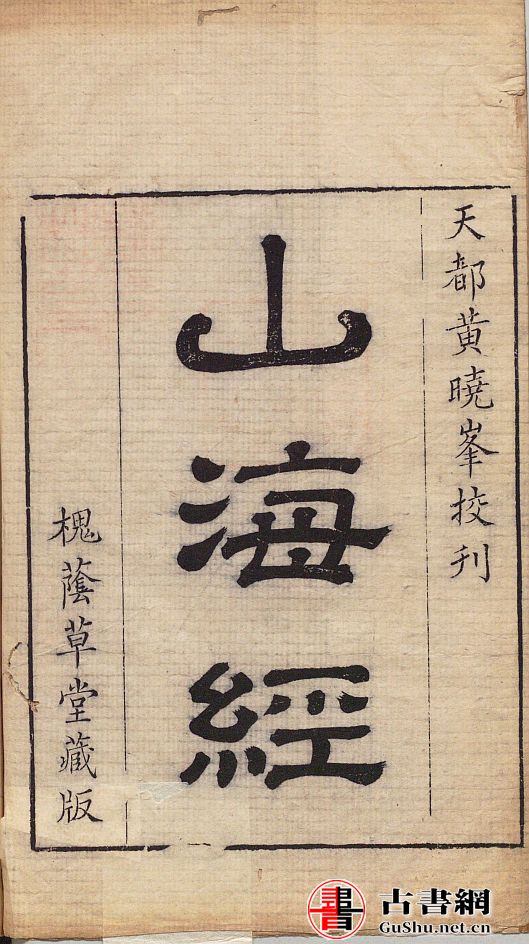 天都黃曉峯挍刊
山海經
槐蔭草堂藏版
書 古書網
GuShu.net.cn